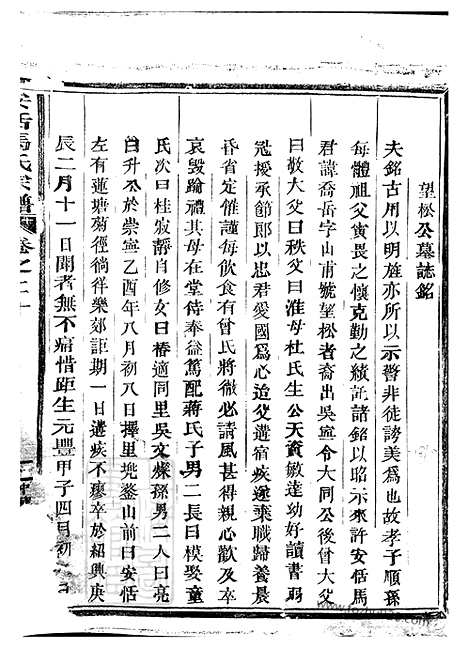 望松公墓誌銘
夫銘古用以明旌亦所以示警非徒誇美爲也故孝子順孫
每體祖父寅畏之懷克勤之績託諸銘以昭示來許安恬馬
君諱喬岳字山甫號望松者裔出吳寧令大同公後曾大父
曰敬大父曰秩父曰淮母杜氏生公天資敏達幼好讀書弱
冠援承節郎以忠君愛國爲心迨父遘宿疾遂棄職歸養晨
昏省定惟謹每飲食有曾氏將徹必請風甚得親心歡及卒
哀毀踰禮其母在堂侍奉益篤配蔣氏子男二長曰模娶童
氏次曰桂寂靜自修女曰椿適同里吳文燦孫男二人曰亮
曰升公於崇寧乙酉年八月初八日擇里兠鍪山前曰安恬
左有蓮塘菊徑徜徉樂郊詎期一日遘疾不瘳卒於紹興庚
辰二月十一日聞者無不痛惜距生元豐甲子四月初
恬馬氏宗譜 卷之二